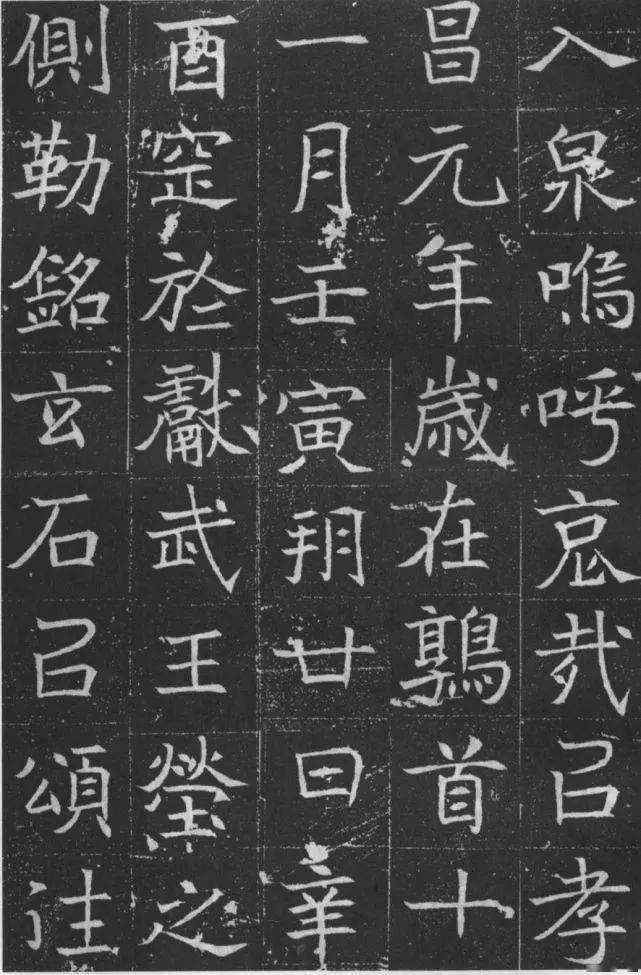 入泉嗚呼哀哉㠯孝
昌元年歲在鶉首十
一月壬寅朔廿日辛
酉窆於獻武王塋之
側勒銘玄石㠯頌往